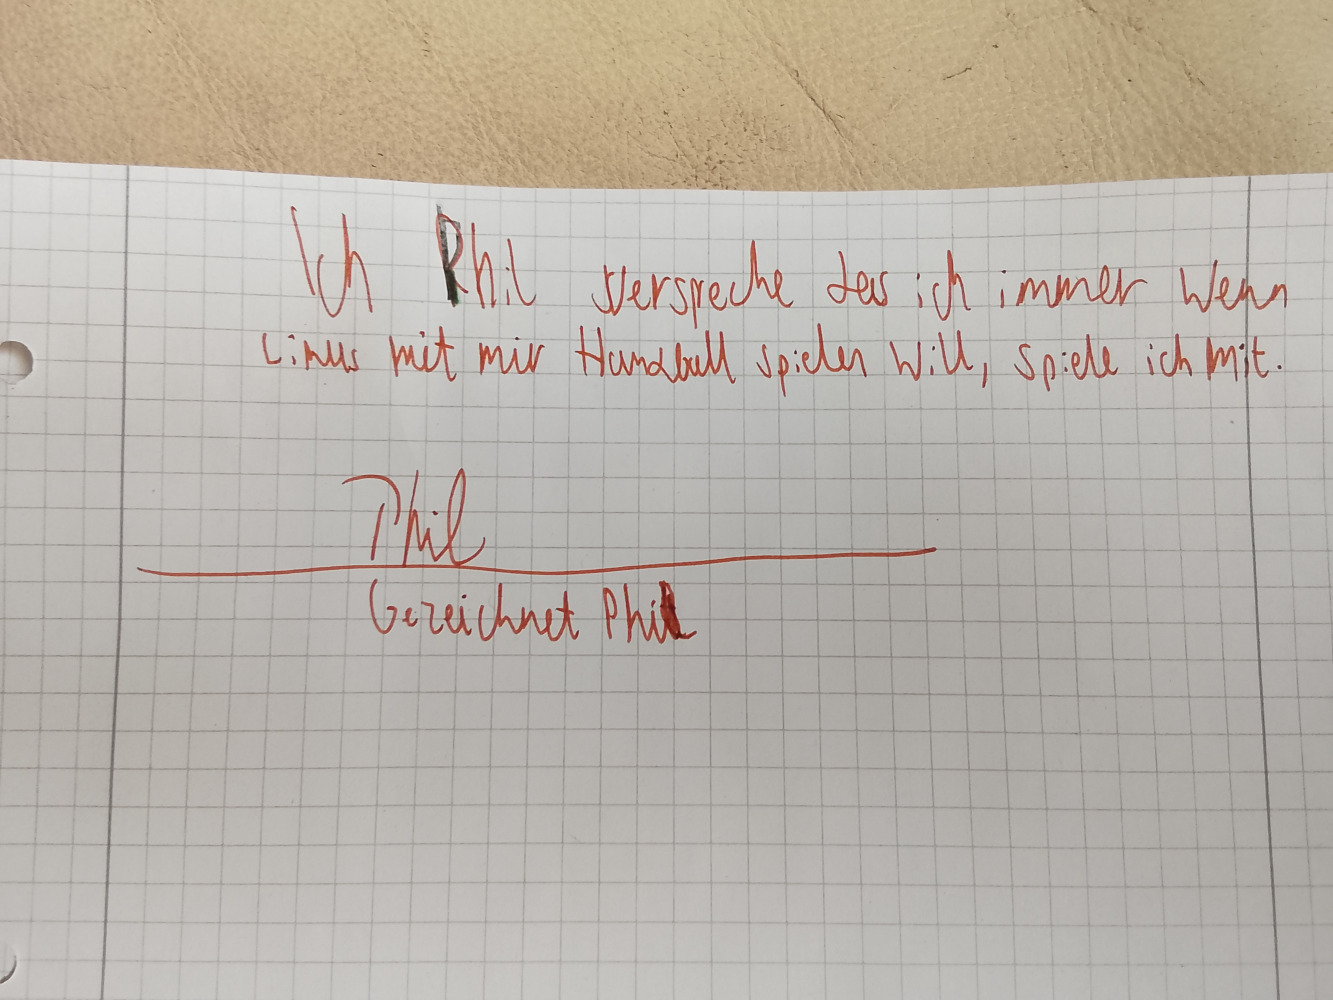 Ich Phil verspreche das ich immer wenn
Linus mit mir Handball spielen will, spiele ich mit.
Phil
Gezeichnet Phil